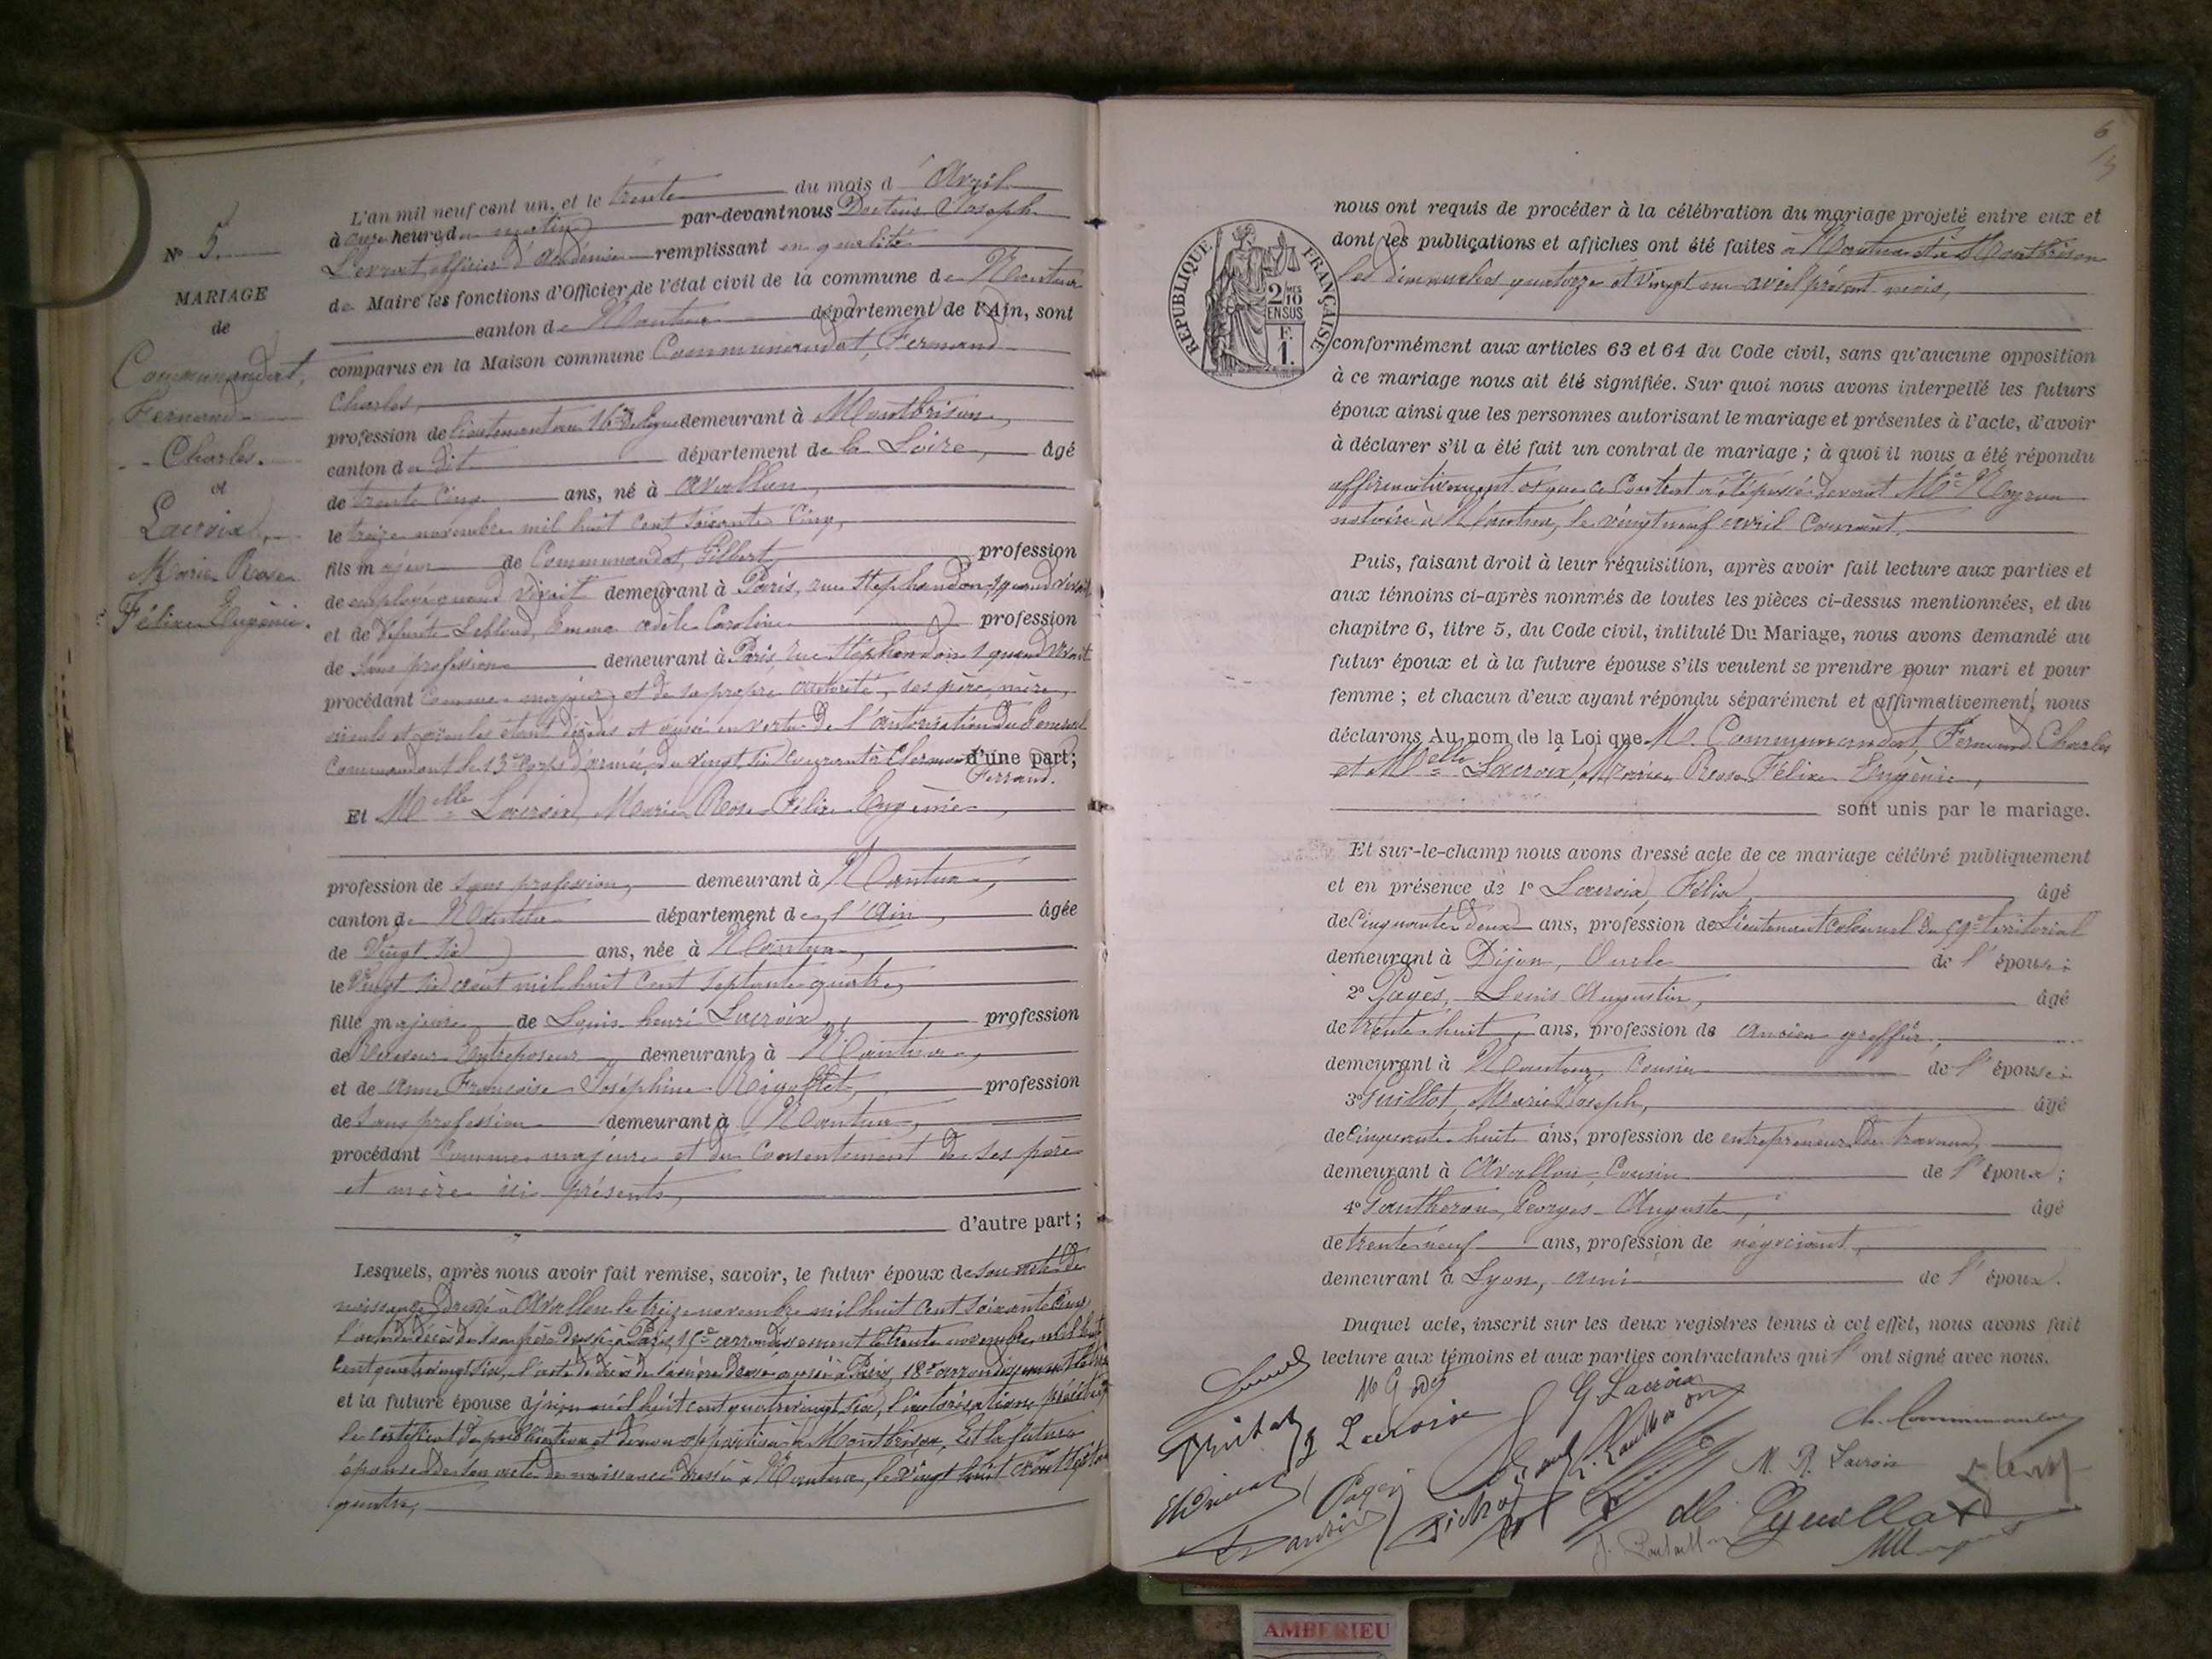 N° 5.
MARIAGE
de
Communandat,
Fernand
Charles.
et
Lacroix,
Marie Rose
Félixe Eugénie.
L'an mil neuf cent un, et le trente du mois d'Avril
à onze heures du matin par-devant nous Docteur Joseph
officier d'académie remplissant en qualité
de Maire les fonctions d'Officier de l'état civil de la commune de Nantua
canton de Nantua département de l'Ain, sont
comparus en la Maison commune Communandat, Fernand
Charles,
profession de lieutenant au 16e de ligne demeurant à Montbrison,
canton du dit département de la Loire, âgé
de trente cinq ans, né à Avallon,
le treize novembre mil huit cent soixante cinq,
fils majeur de Communandat, Gilbert, profession
de employé quand vivait demeurant à Paris, rue Stephenson, 1 quand vivait
et de défunte Leblond, Emma Adèle Caroline profession
de sans profession demeurant à Paris, rue Stéphenson 1 quand vivait
procédant comme majeur et de sa propre autorité, ses père, mère,
aieuls et aieules étant décédés et aussi en vertu de l'autorisation du Général
Commandant le 13e Corps d'armée, du vingt six courant à Clermont d'une part;
Ferrand.
Et Melle Lacroix, Marie Rose Félixe Eugénie,
profession de sans profession, demeurant à Nantua,
canton de Nantua département de l'Ain, âgée
de vingt six ans, née à Nantua,
le vingt six août mil huit cent septante quatre,
fille majeure de Louis henri Lacroix, profession
de Receveur Entreposeur, demeurant à Nantua,
et de Anne Françoise Joséphine Rigollet, profession
de sans profession demeurant à Nantua,
procédant comme majeure et du consentement de ses père
et mère ici présents,
d'autre part;
Lesquels, après nous avoir fait remise, savoir, le futur époux de son acte de
naissance dressé à Avallon le treize novembre mil huit cent soixante cinq
l'acte de décès de son père dressé à Paris, arrondissement le trente novembre mil huit
cent quatre vingt six, l'acte de décès de sa mère dressé aussi à Paris, 18e arrondissement le
et la future épouse d juin mil huit cent quatre vingt six, l'autorisation précitée,
le certificat de publication et de non opposition à Montbrison, Et la future
épouse de son acte de naissance dressé à Nantua, le vingt huit août septante
quatre,
6
RÉPUBLIQUE FRANÇAISE
2 MES 10
EN SUS
F.
1.
nous ont requis de procéder à la célébration du mariage projeté entre eux et
dont les publications et affiches ont été faites à Nantua et à Montbrison
les dimanches quatorze et vingt un avril présent mois,
conformément aux articles 63 et 64 du Code civil, sans qu'aucune opposition
à ce mariage nous ait été signifiée. Sur quoi nous avons interpellé les futurs
époux ainsi que les personnes autorisant le mariage et présentes à l'acte, d'avoir
à déclarer s'il a été fait un contrat de mariage; à quoi il nous a été répondu
affirmativement et que ce Contrat a été passé devant Me
notaire à Nantua, le vingt neuf avril courant.
Puis, faisant droit à leur réquisition, après avoir fait lecture aux parties et
aux témoins ci-après nommés de toutes les pièces ci-dessus mentionnées, et du
chapitre 6, titre 5, du Code civil, intitulé Du Mariage, nous avons demandé au
futur époux et à la future épouse s'ils veulent se prendre pour mari et pour
femme; et chacun d'eux ayant répondu séparément et affirmativement, nous
déclarons Au nom de la Loi que M. Communandat, Fernand Charles
et Melle Lacroix, Marie Rose Félixe Eugénie,
sont unis par le mariage.
Et sur-le-champ nous avons dressé acte de ce mariage célébré publiquement
et en présence de 1° Lacroix, Félix, âgé
de cinquante deux ans, profession de Lieutenant Colonel du territorial
demeurant à Dijon, Oncle de l'épouse;
2° Pagès, Louis Augustin, âgé
de trente huit, ans, profession de ancien greffier,
demeurant à Nantua, cousin de l'épouse;
3° Guillot, Marie Joseph, âgé
de cinquante huit ans, profession de entrepreneur de travaux,
demeurant à Avallon, Cousin de l'époux;
4° Gautheron, Georges Auguste, âgé
de trente neuf ans, profession de négociant,
demeurant à Lyon, ami de l'époux.
Duquel acte, inscrit sur les deux registres tenus à cet effet, nous avons fait
lecture aux témoins et aux parties contractantes qui l'ont signé avec nous.
G. Lacroix
Lacroix
M. R. Lacroix
AMBERIEU